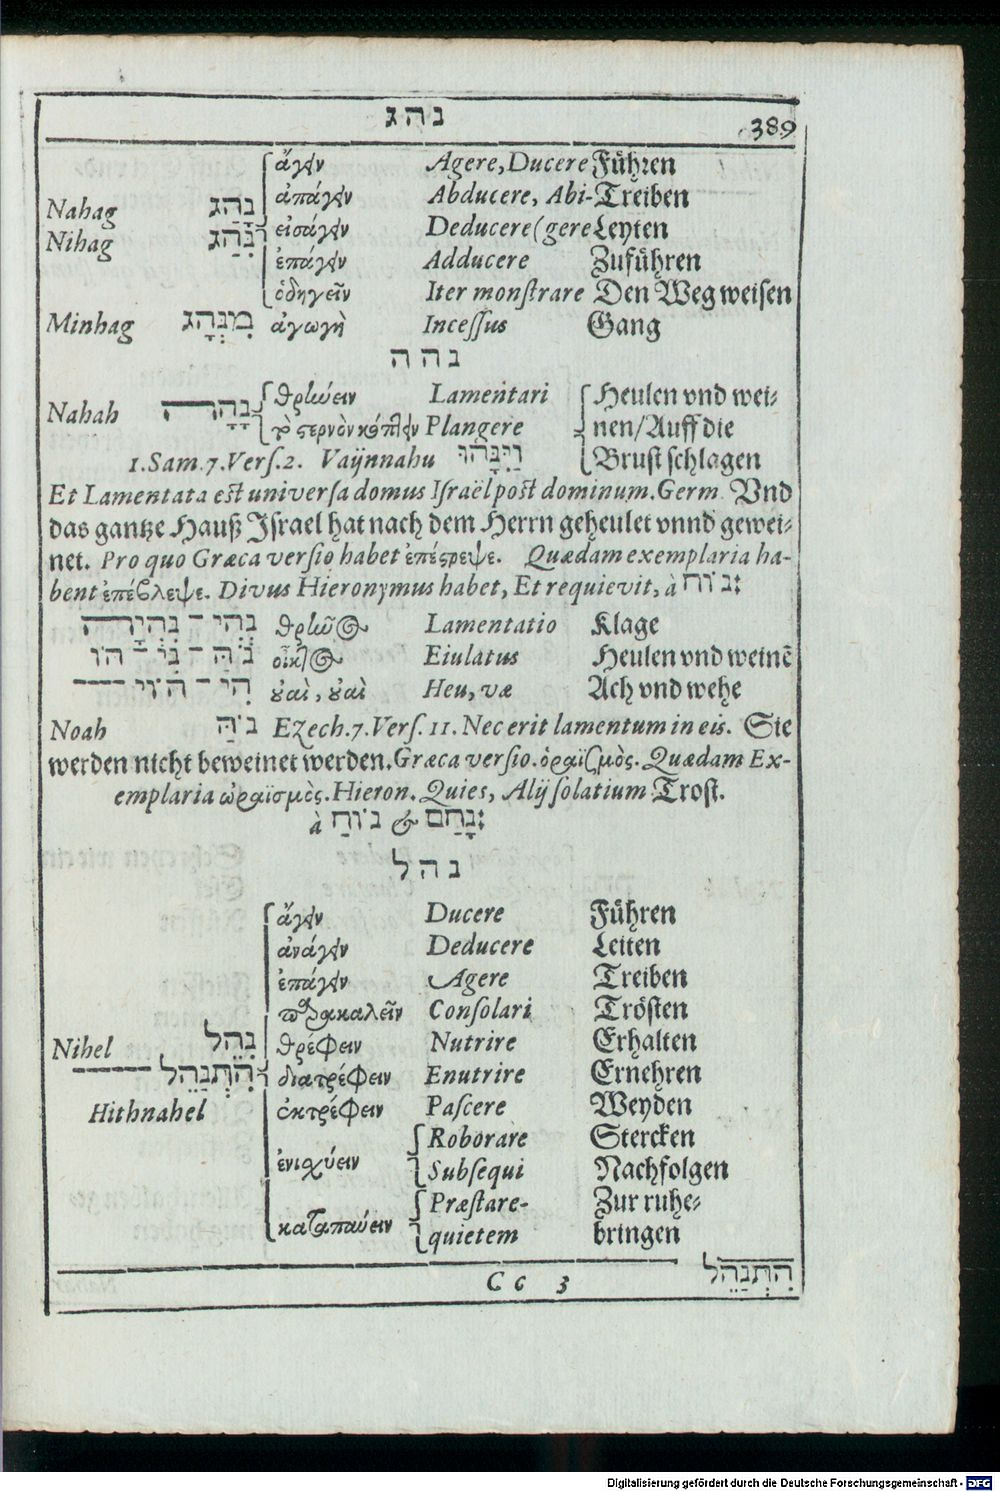 נהג
389
ἄγειν Agere, Ducere Führen
Nahag נָהַג ἀπάγειν Abducere, Abi- Treiben
Nihag נִהַג εἰσάγειν Deducere (gere Leyten
ἐπάγειν Adducere Zuführen
ὁδηγεῖν Iter monſtrare Den Weg weiſen
Minhag מִנְהָג ἀγωγὴ Inceſſus Gang
נהה
Nahah נָהָה θρlωύειν Lamentari Heulen vnd wei⸗
Plangere nen/Auff die
1.Sam.7.Verſ.2. Vaÿnnahu וַיִּנָּהוּ Bruſt ſchlagen
Et Lamentata est univerſa domus Iſraël post dominum. Germ. Vnd
das gantze Hauß Iſrael hat nach dem Herrn geheulet vnnd gewei⸗
net. Pro quo Græca verſio habet ἐπέςρεψε. Quædam exemplaria ha-
bent ἐπέβλεψε. Divus Hieronymus habet, Et requievit, à נוח:
נְהִי – נִהְיָה Lamentatio Klage
נֹהַּ – נִי – הו Eiulatus Heulen vnd weinẽ
הִי – הוי ȣαὶ, ȣαὶ Heu, væ Ach vnd wehe
Noah נֹהַּ Ezech.7.Verſ. 11. Nec erit lamentum in eis. Sie
werden nicht beweinet werden. Græca verſio. ὁραϊσμὸς. Quædam Ex-
emplaria ὡραϊσμὸς. Hieron. Quies, Alij ſolatium Troſt.
à נוֹחַ & נָחַם:
נהל
ἄγειν Ducere Führen
ἀνάγειν Deducere Leiten
ἐπάγειν Agere Treiben
παρακαλεῖν Conſolari Tröſten
Nihel נִהֵל θρέφειν Nutrire Erhalten
הִתְנַהֵל διατρέφειν Enutrire Ernehren
Hithnahel ἐκτρέφειν Paſcere Weyden
Roborare Stercken
ἐνισχύειν Subſequi Nachfolgen
Præſtare- Zur ruhe⸗
καταπαύειν quietem bringen
Cc 3 הִתְנַהֵל
Digitalisierung gefördert durch die Deutsche Forschungsgemeinschaft - DFG